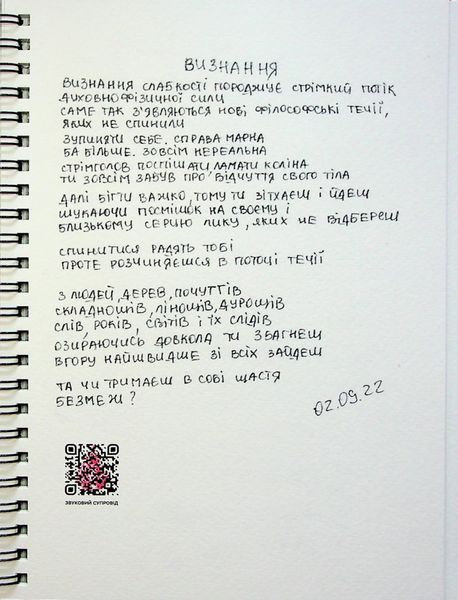 ВИЗНАННЯ
ВИЗНАННЯ СЛАБКОСТІ ПОРОДЖУЄ СТРІМКИЙ ПОТІК
ДУХОВНОФІЗИЧНОЇ СИЛИ
САМЕ ТАК З'ЯВЛЯЮТЬСЯ НОВІ ФІЛОСОФСЬКІ ТЕЧІЇ,
ЯКИХ НЕ СПИНИЛИ
ЗУПИНЯТИ СЕБЕ. СПРАВА МАРНА
БА БІЛЬШЕ. ЗОВСІМ НЕРЕАЛЬНА
СТРІМГОЛОВ ПОСПІШАТИ ЛАМАТИ КОЛІНА
ТИ ЗОВСІМ ЗАБУВ ПРО ВІДЧУТТЯ СВОГО ТІЛА
ДАЛІ БІГТИ ВАЖКО, ТОМУ ТИ ЗІТХАЄШ І ЙДЕШ
ШУКАЮЧИ ПОСМІШОК НА СВОЄМУ І
БЛИЗЬКОМУ СЕРЦЮ ЛИКУ, ЯКИХ НЕ ВІДБЕРЕШ
СПИНИТИСЯ РАДЯТЬ ТОБІ
ПРОТЕ РОЗЧИНЯЄШСЯ В ПОТОЦІ ТЕЧІЇ
З ЛЮДЕЙ, ДЕРЕВ, ПОЧУТТІВ
СКЛАДНОЩІВ, ЛІНОЩІВ, ДУРОЩІВ
СЛІВ, РОКІВ, СВІТІВ І ЇХ СЛІДІВ
ОЗИРАЮЧИСЬ ДОВКОЛА ТИ ЗБАГНЕШ
ВГОРУ НАЙШВИДШЕ ЗІ ВСІХ ЗАЙДЕШ
ТА ЧИ ТРИМАЄШ В СОБІ ЩАСТЯ
БЕЗМЕЖ?
02.09.22
ЗВУКОВИЙ СУПРОВІД